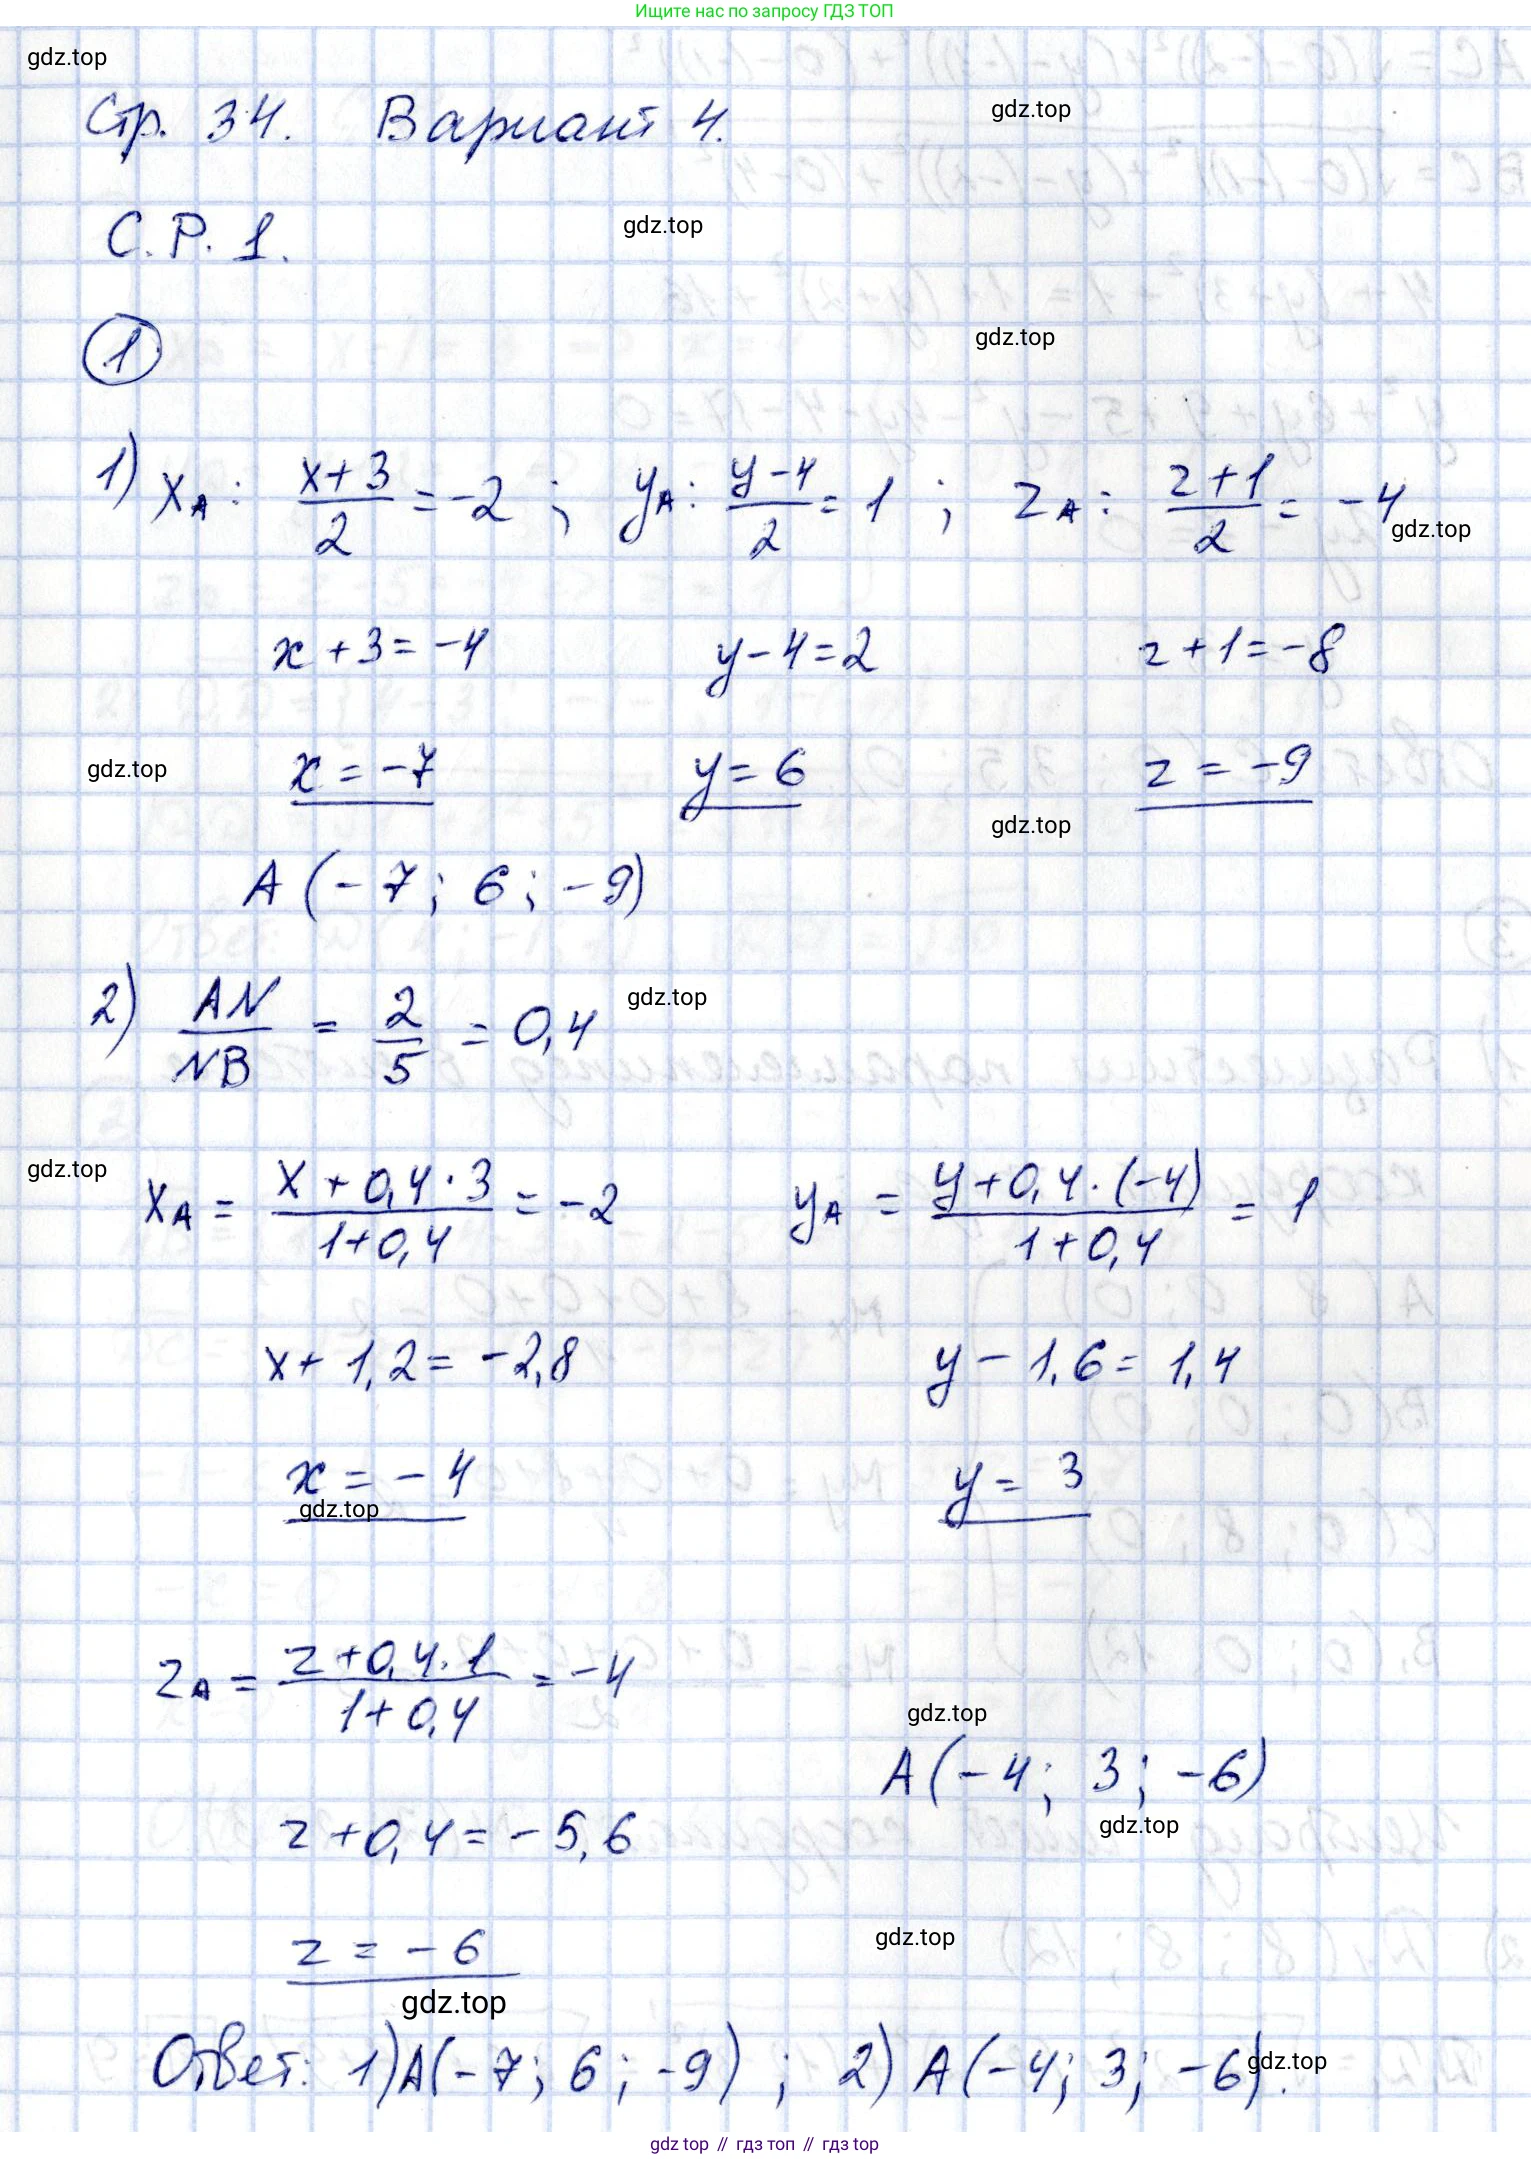 Ищите нас по запросу ГДЗ ТОП
gdz.top
Стр. 34. Вариант 4.
gdz.top
С.Р. 1.
gdz.top
1
gdz.top
1) xA: (x+3)/2 = -2 ; yA: (y-4)/2 = 1 ; zA: (z+1)/2 = -4
gdz.top
x + 3 = -4 y - 4 = 2 z + 1 = -8
gdz.top x = -7 y = 6 z = -9
gdz.top
A (-7; 6; -9)
2) AN/NB = 2/5 = 0,4
gdz.top
gdz.top
xA = (x + 0,4·3)/(1+0,4) = -2 yA = (y+0,4·(-4))/(1+0,4) = 1
x + 1,2 = -2,8 y - 1,6 = 1,4
x = -4 y = 3
gdz.top
zA = (z+0,4·1)/(1+0,4) = -4
gdz.top
A (-4; 3; -6)
gdz.top
z + 0,4 = -5,6
gdz.top
z = -6
gdz.top
Ответ: 1) A(-7; 6; -9) ; 2) A (-4; 3; -6).
gdz.top
gdz top // гдз топ // гдз top